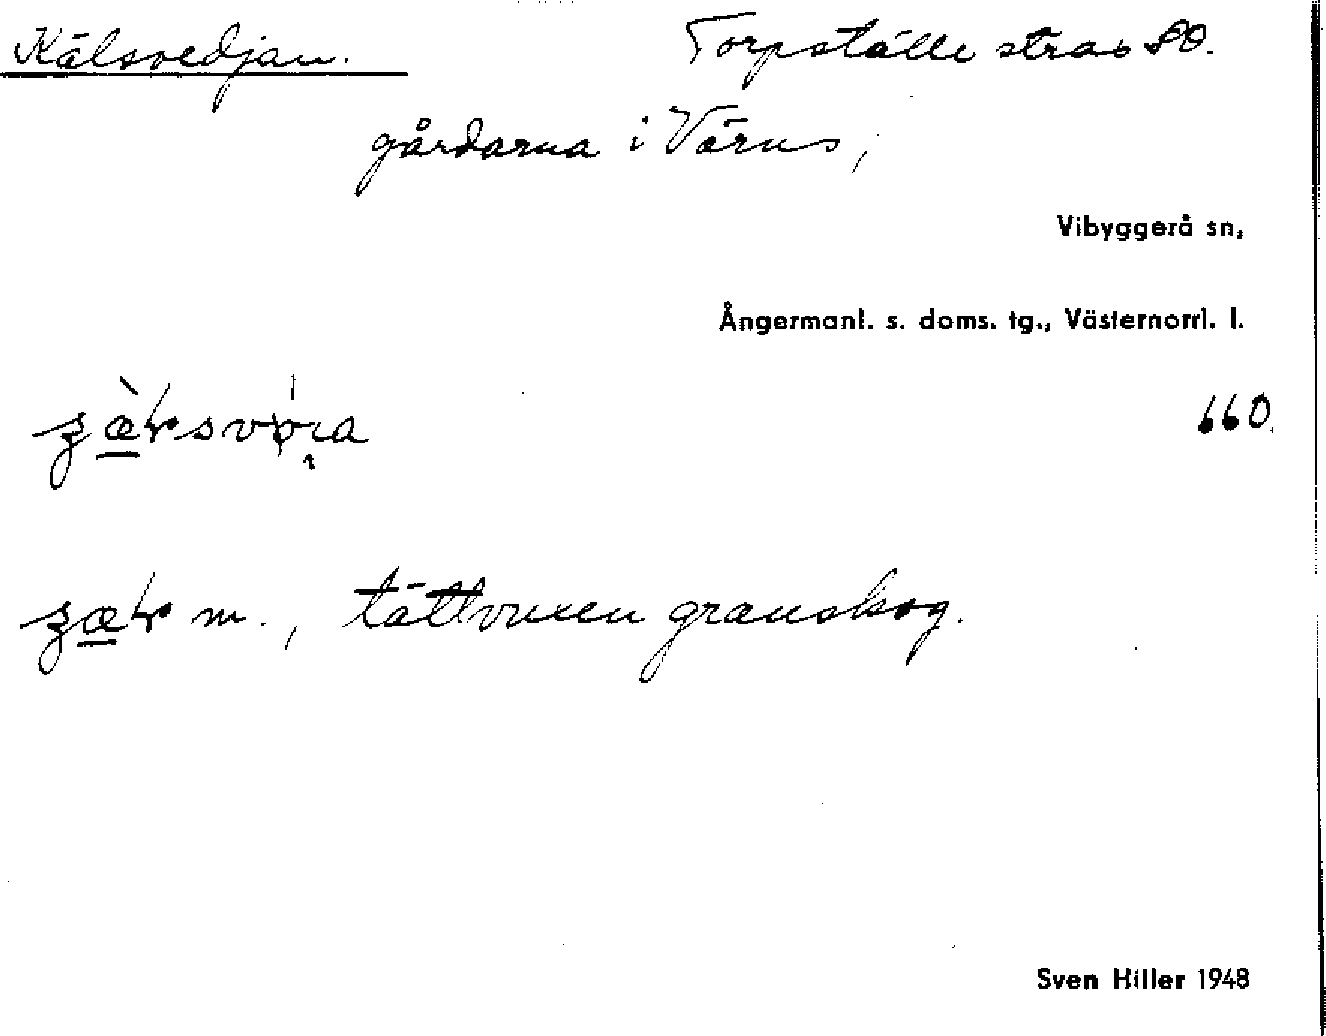 Kälsvedjan. Torpställe strax SO.
gårdarna i Värns,
Vibyggerå sn,
Ångermanl. s. doms. tg., Västernorrl. l.
660.
m., tättvuxen granskog.
Sven Hiller 1948